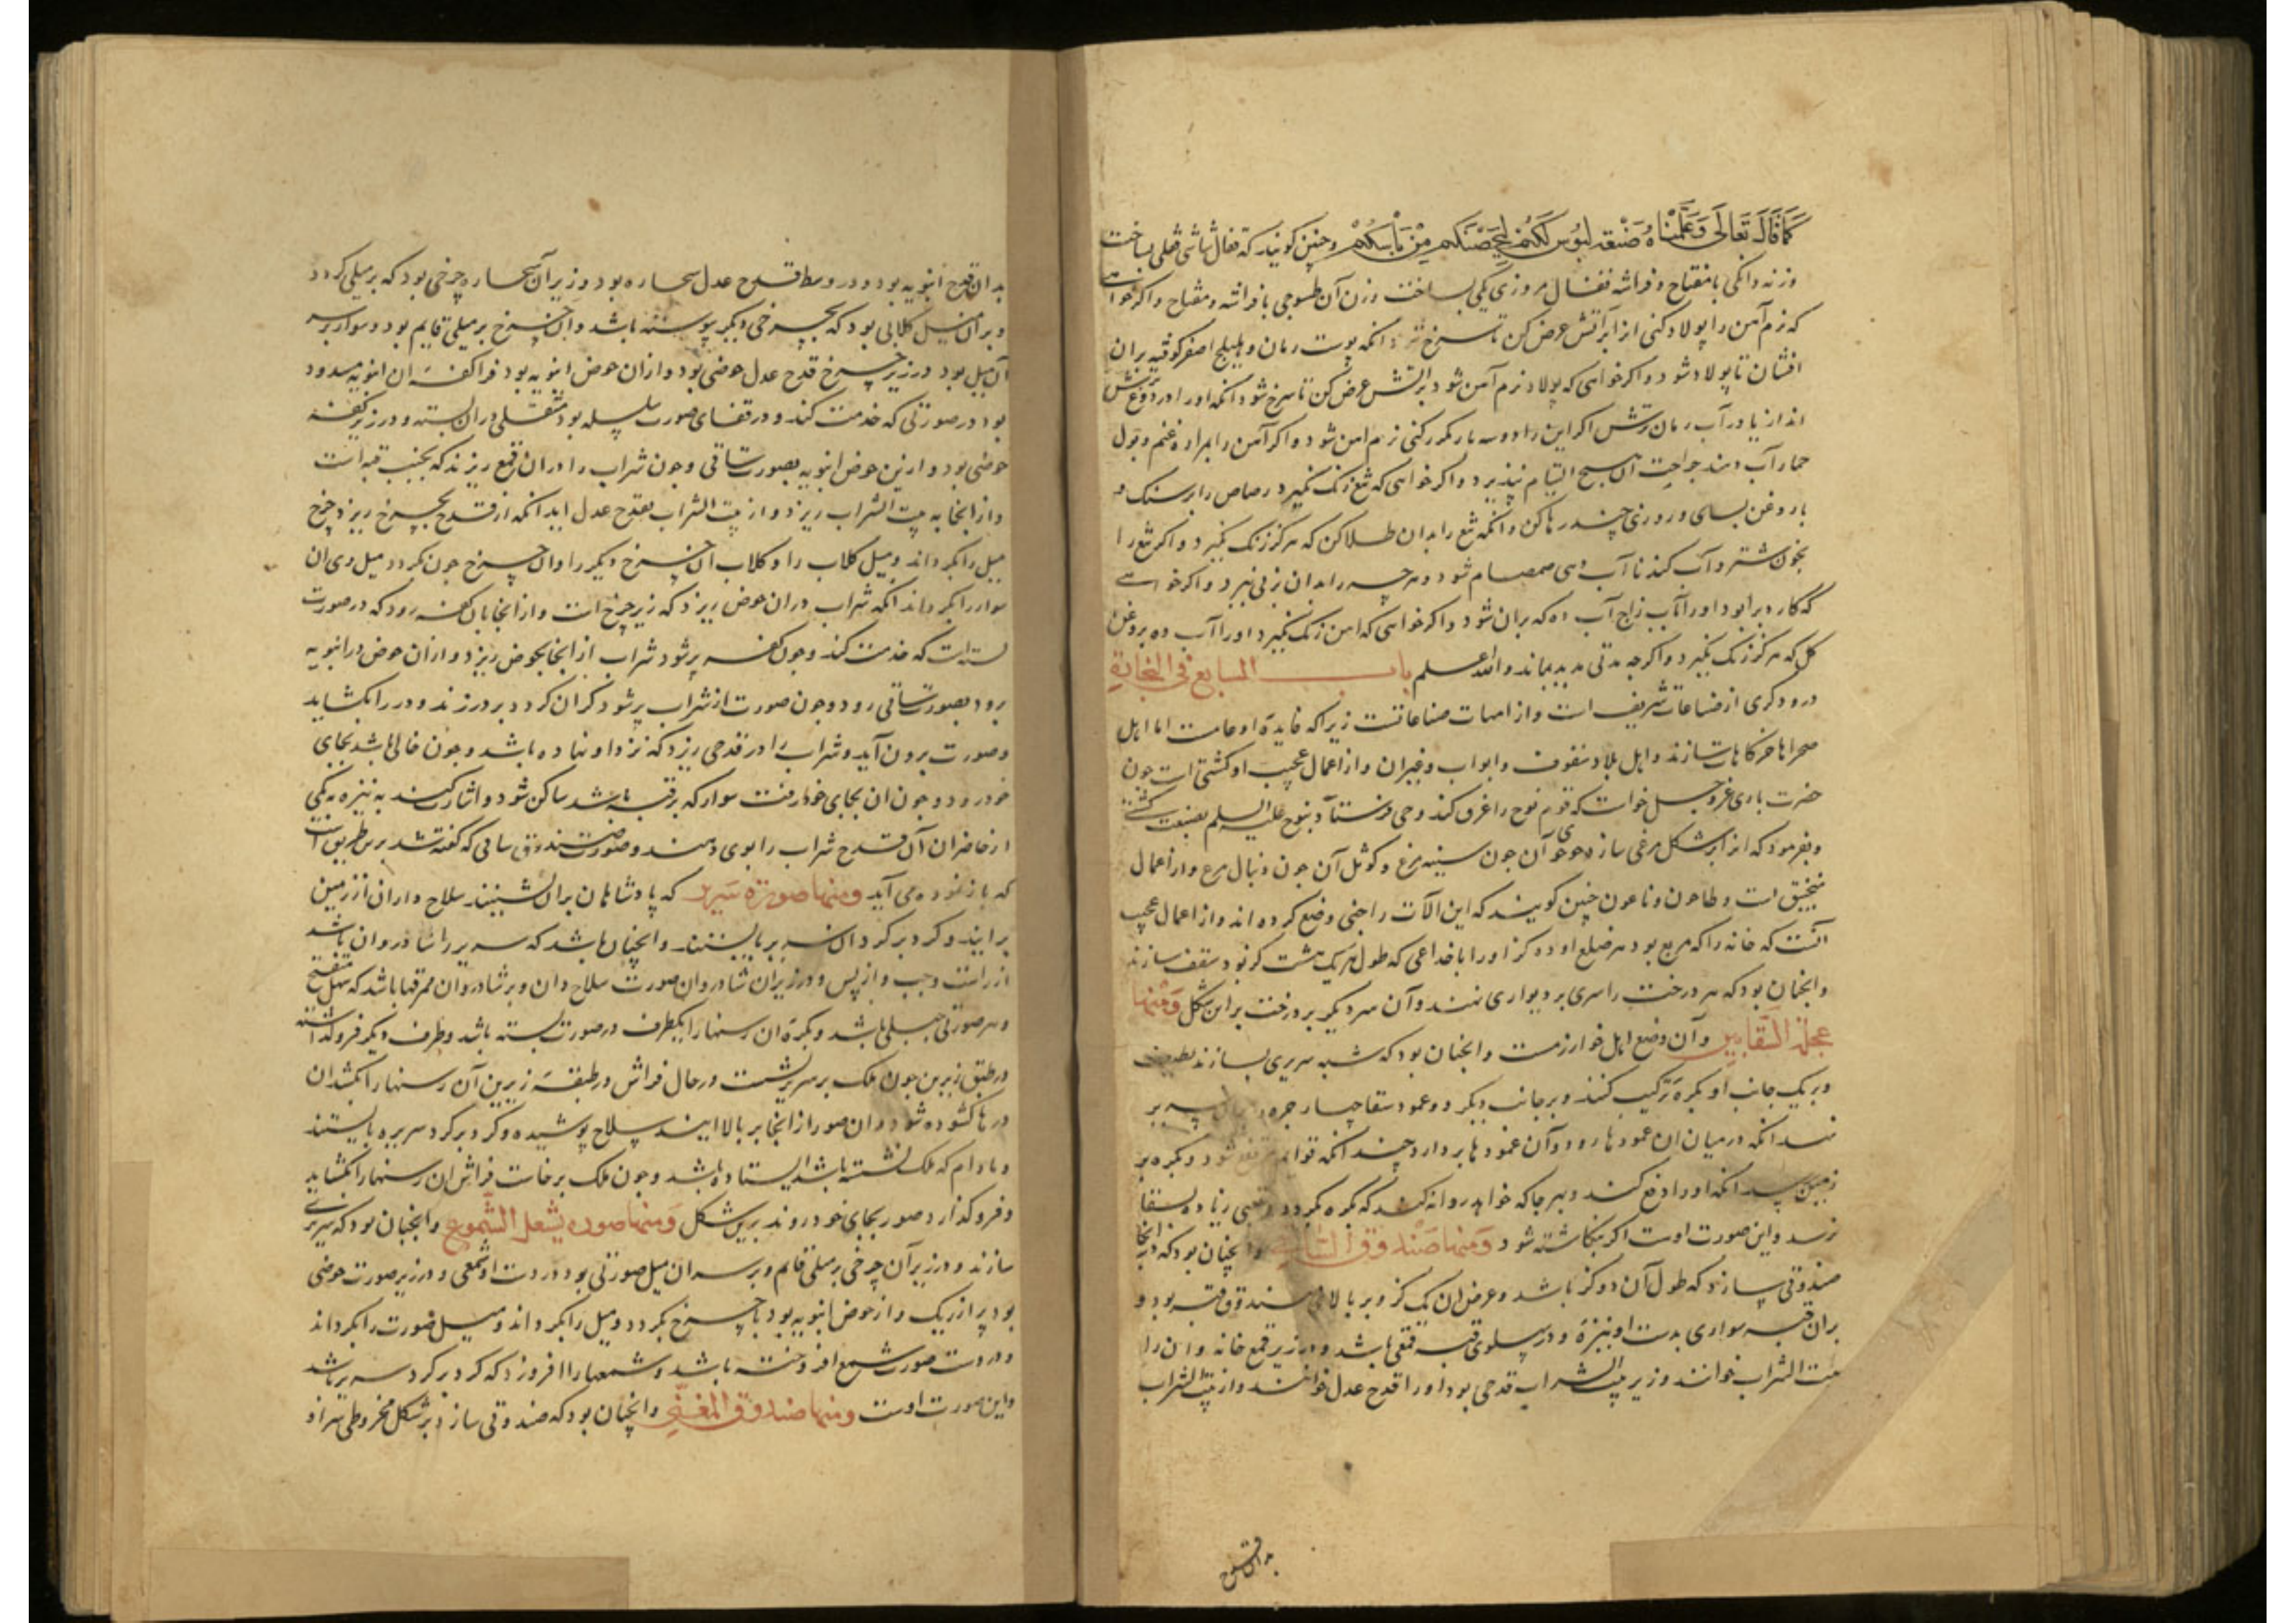 كَمَا قَالَ تَعَالَى وَعَلَّمْنَاهُ صَنْعَةَ لَبُوسٍ لَكُمْ لِتُحْصِنَكُمْ مِنْ بَأْسِكُمْ وچنین کویند که قفال شاشی قفلی بساخت
وزنه دانکی با مفتاح و فراشه قفال مروزی یکی بساخت وزن آن طسوجی با فراشه و مفتاح واکر خواهی
که نرم آهن را پولاد کنی از ابر آتش عرض کن تا سرخ شود انکه پوست رمان و هلیلج اصفر کوفته بران
افشان تا پولاد شود و اکر خواهی که پولاد نرم آهن شود بر آتش عرض کن تا سرخ شود انکه او را در دوغ ترش
انداز یا در آب رمان ترش اکر این را دو سه بار مکرر کنی نرم اهن شود و اکر آهن را بمراره غنم و بول
حمار آب دهند جراحت آن هیچ التیام نپذیرد و اکر خواهی که تیغ زنک نکیرد رصاص را بر سنک و
با روغن بسای و روزی چند رها کن وانکه تیغ را بدان طلا کن که هرکز زنک نکیرد و اکر تیغ را
بخون شتر و آب کندنا آب دهی صمصام شود و هرچه را بدان بزنی ببرد و اکر خواهی
که کارد برا بود او را بآب زاج آب ده که بران شود و اکر خواهی که اهن زنک نکیرد او را آب ده بروغن
کل که هرکز زنک نکیرد و اکرچه مدتی مدید بماند والله اعلم باب السابع فی النجارة
درودکری از صناعات شریف است و از امهات صناعاتست زیرا که فایده او عامست اما اهل
صحرا ها خرکاهات سازند و اهل بلاد سقوف و ابواب و غیران و از اعمال عجیب او کشتی است چون
حضرت باری عز و جل خواست که قوم نوح را غرق کند وحی فرستاد بنوح علیه السلم بصنعت کشتی
و بفرمود که انرا بر شکل مرغی سازد آن چون سینه مرغ و کوثل آن چون دنبال مرغ و از اعمال
منجنیق است و طاحون و ناعون چنین کویند که این آلات را جنی وضع کرده اند و از اعمال عجیب
آنست که خانه را که مربع بود هر ضلع او ده کز او را باخداعی که طول هر یک هشت کز بود سقف سازند
وانچنان بود که هر درخت را سری بر دیواری نهند و آن سر دیکر بر درخت بر این شکل وَمِنها
عجلة السَّقایین و آن وضع اهل خوارزمست وانچنان بود که شبه سریری بسازند لطیف
و بر یک جانب او بکره ترکیب کنند و بر جانب دیکر دو عمود سقا چهار جره
نهد انکه در میان ان عمودها رود و آن عمودها بردارد چند انکه قوایم مرتفع شود و بکره بر
زمین رسد انکه او را دفع کند و بهر جا که خواهد روانه کند که بکره میکردد و تعبی زیاده بسقا
نرسد و این صورت اوست اکر نکاشته شود وَمِنها صَندُوق السَّاقی وانچنان بود که در انجا
صندوقی سازند که طول آن دو کز باشد و عرض ان یک کز و بر بالای صندوق قبه بود و
بران قبه سواری بدست او نیزه و در پهلوی قبه قمعی باشد و در زیر قمع خانه و ان را
بیت الشراب خوانند و زیر بیت الشراب قدحی بود او را قدح عدل خوانند و از بیت الشراب
بدان قدح
بدان قدح انبوبه بود و در وسط قدح عدل سحاره بود و زیر آن سحاره چرخی بود که بر میلی کردد
و بر آن میل کلابی بود که بچرخی دیکر پیوسته باشد وان چرخ بر میلی قایم بود و سوار بر سر
آن میل بود و در زیر چرخ قدح عدل حوضی بود و از ان حوض انبوبه بود فرا کفه ان انبوبه مسدود
بود در صورتی که خدمت کند و در قفای صورت سلسله بود مثقلی دران بسته و در زیر کفه
حوضی بود و از ین حوض انبوبه بصورت ساقی و چون شراب را دران قمع ریزند که بجنب قبه است
و از انجا به بیت الشراب ریزد و از بیت الشراب بقدح عدل اید انکه از قدح بچرخ ریزد چرخ
میل را بکرداند و میل کلاب را و کلاب آن چرخ دیکر را وان چرخ چون کردد میل وی ان
سوار را بکرداند انکه شراب دران حوض ریزد که زیر چرخ است و از انجا بان کفه رود که در صورت
بسته است که خدمت کند و چون کفه پر شود شراب از انجا بحوض ریزد و از ان حوض در انبوبه
رود بصورت ساقی رود و چون صورت از شراب پر شود کران کردد بر در زند و در را بکشاید
و صورت برون آید و شراب را در قدحی ریزد که نزد او نهاده باشد و چون خالی باشد بجای
خود رود و چون ان بجای خود رفت سوار که بر قبه باشد ساکن شود و اشارت کند به نیزه به یکی
از حاضران آن قدح شراب را بوی دهند و صورت صندوق ساقی که کفته شد برین طریق است
که باز نموده می آید ومنها صورة سَریر که پادشاهان بران نشینند سلاح داران از زمین
برایند و کرد بر کرد ان سریر بایستند وانچنان باشد که سریر را شادروان باشد
از راست و چپ و از پس و در زیر ان شادروان صورت سلاح دان و بر شادروان ممرقها باشد که سهل منفتح
و هر صورتی حبلی باشد و بکره ان رسنها را یکطرف در صورت بسته باشد و طرف دیکر فرو کذاشته
در طبق زیرین چون ملک بر سریر نشست در حال فراش در طبقه زیرین آن رسنها را بکشد ان
درها کشوده شود و ان صور از انجا بر بالا ایند سلاح پوشیده و کرد بر کرد سریر بایستند
و مادام که ملک نشسته باشد ایستاده باشند و چون ملک برخاست فراش ان رسنها را بکشاید
و فرو کذارد صور بجای خود روند برین شکل وَمِنها صوره یشعل الشُّموع وانچنان بود که سریری
سازند و در زیر آن چرخی بر میلی قایم و بر سر ان میل صورتی بود در دست او شمعی و در زیر صورت حوضی
بود پر از ریک و از حوض انبوبه بود تا چرخ بکردد و میل را بکرداند و میل صورت را بکرداند
و در دست صورت شمع افروخته باشد و شمعها را افروزد که کرد بر کرد سریر باشد
و این صورت اوست ومنها صَندوق المغنّی وانچنان بود که صندوقی سازند بر شکل مخروطی سر او